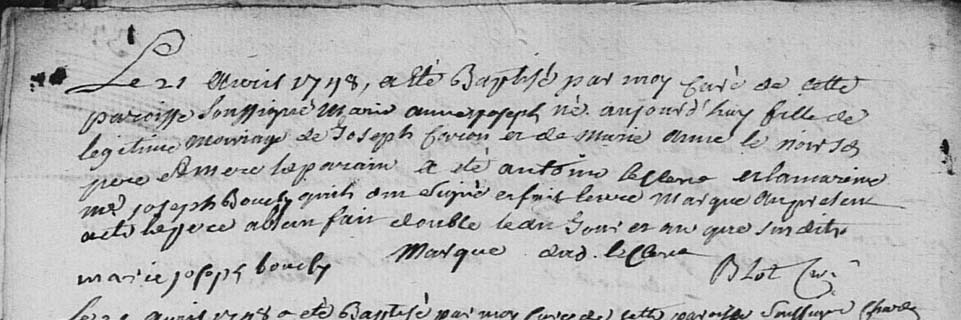 Le 21 Avril 1748, a été Baptisé par moy Curé de cette
paroisse Soussigné Marie anne joseph né aujourd'huy fille de
legitime Mariage de Joseph Caron et de Marie Anne le noir Ses
pere et Mere le parain a été antoine le Clerc et la marine
Mie joseph Boucly quits ont Signé et fait leurs Marque au present
acte le pere absen fait double ledit Jour et an que susdits
marie joseph boucly Marque dud. le Clerc Blot Curé
Le 21 Avril 1748 a été Baptisé par moy Curé de cette paroisse Soussigné